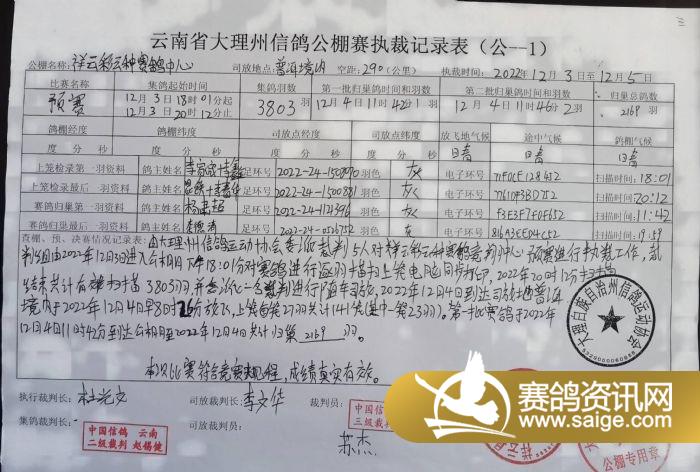 云南省大理州信鸽公棚赛执裁记录表（公--1）
公棚名称: 祥云彩云种赛鸽中心 司放地点: 普洱境内 空距: 290（公里） 执裁时间: 2022年12月3日至12月5日
比赛名称 集鸽起始时间 集鸽羽数 第一批归巢鸽时间和羽数 第二批归巢鸽时间和羽数 归巢总鸽数
预赛 12月3日18时01分起 12月3日20时12分止 3803羽 12月4日11时42分1羽 12月4日11时46分2羽 2169羽
鸽棚经度 鸽棚纬度 司放点经度 司放点纬度 放飞地气候 途中气候 鸽棚气候
度 分 秒 度 分 秒 度 分 秒 度 分 秒
上笼检录第一羽资料 鸽主姓名 足环号 2022-24- 羽色 灰 电子环号 扫描时间 18:01
上笼检录最后一羽资料 鸽主姓名 足环号 2022-24-150881 羽色 灰 电子环号 扫描时间 20:12
赛鸽归巢第一羽资料 鸽主姓名 杨建超 足环号 2022-24-124396 羽色 灰 电子环号 F3E3F7F0F652 扫描时间 11:42
赛鸽归巢最后一羽资料 鸽主姓名 足环号 2022-24-056752 羽色 灰 电子环号 扫描时间 19:59
查棚、预、决赛情况记录表: 由大理州信鸽运动协会委派裁判5人对祥云彩云种赛鸽竞翔中心预赛进行执裁工作,裁
判组由2022年12月3日进入公棚日下午18:01分对赛鸽进行逐羽扫描上笼电脑同步打印,2022年20时12分扫描
结束共计有效扫描3803羽,并委派一名裁判进行随车司放,2022年12月4日到达司放地普洱
境内于2022年12月4日早8时26分放飞,上笼每笼27羽共计141笼(其中一笼23羽)。第一批赛鸽于2022年
12月4日11时42分到达公棚至2022年12月4日共计归巢2169羽。
本次比赛符合竞赛规程,成绩真实有效。
执行裁判长: 杜光文 司放裁判长: 李文华 裁判员:
集鸽裁判长: 司放裁判员: 苏杰
中国信鸽 云南
二级裁判 赵锡健
中国信鸽
三级裁判
大理白族自治州信鸽运动协会
5329000060859
公棚专用章
赛鸽资讯网
www.saige.com